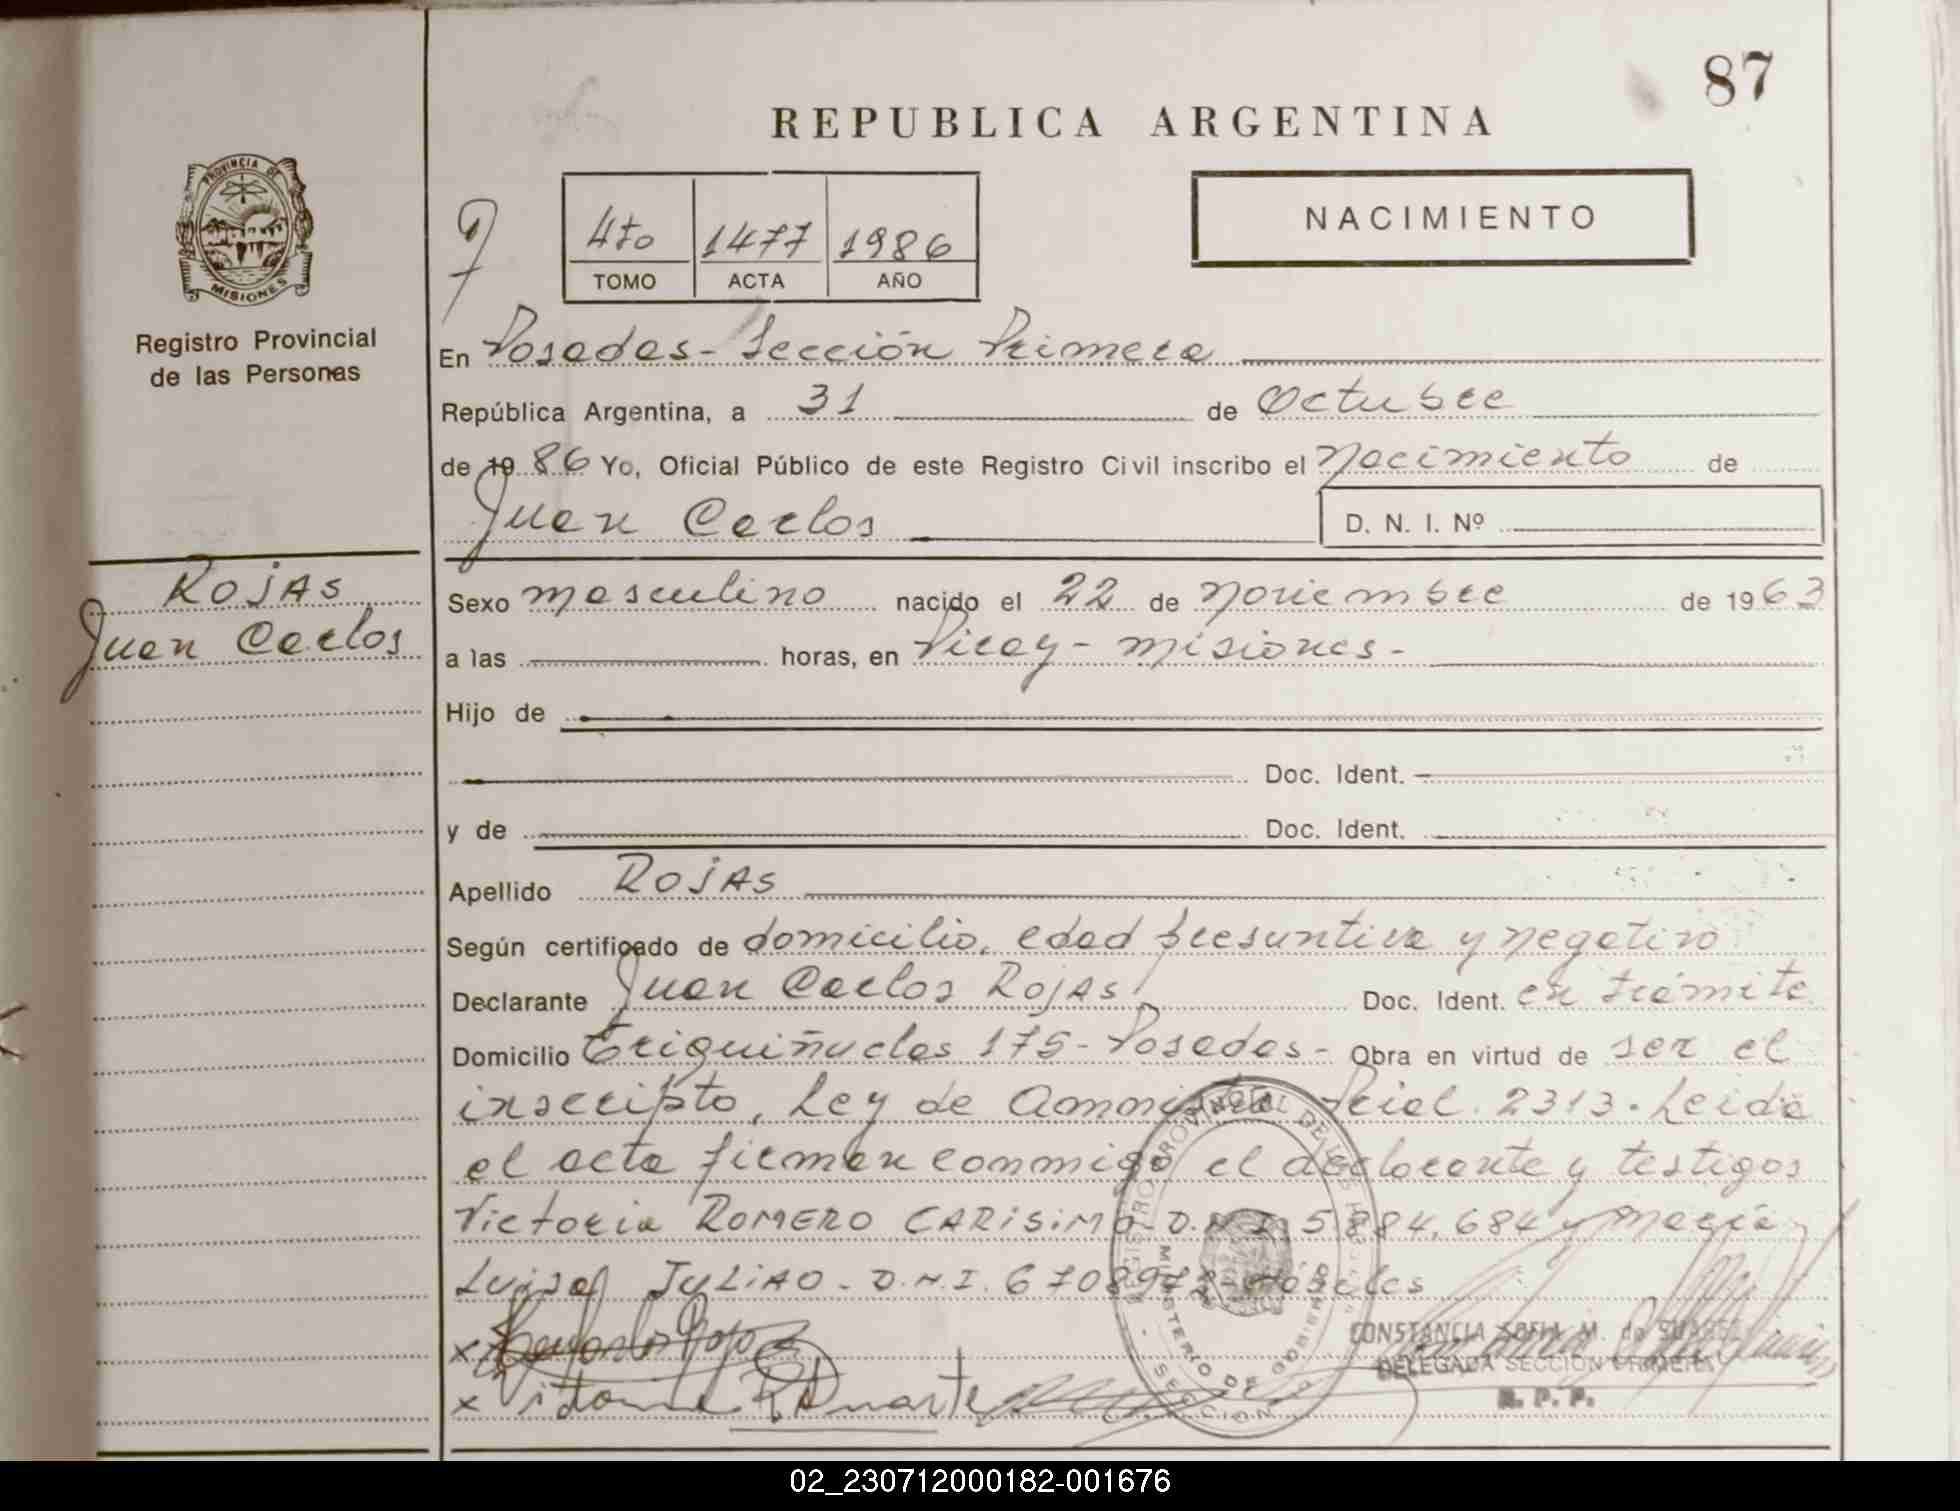 87
REPUBLICA ARGENTINA
PROVINCIA DE
MISIONES
Registro Provincial
de las Personas
4to 1477 1986
TOMO ACTA AÑO
NACIMIENTO
En Posadas - Sección Primera
República Argentina, a 31 de Octubre
de 1986 Yo, Oficial Público de este Registro Civil inscribo el Nacimiento de
Juan Carlos D. N. I. Nº
ROJAS
Juan Carlos
Sexo masculino nacido el 22 de Noviembre de 1963
a las horas, en Picay - Misiones -
Hijo de
Doc. Ident.
y de Doc. Ident.
Apellido ROJAS
Según certificado de domicilio, edad presuntiva y negativo
Declarante Juan Carlos Rojas Doc. Ident. en trámite
Domicilio 175 - Posadas - Obra en virtud de ser el
inscripto, Ley de Amnistia Pcial. 2313. Leida
el acta firman conmigo el declarante y testigos
Victoria ROMERO CARISIMO - D.N.I. 5.884.684 y Maria
Luisa JULIAO - D.N.I. 6708972
CONSTANCIA SOFIA M. de SUAREZ
DELEGADA SECCION PRIMERA
R. P. P.
REGISTRO PROVINCIAL DE LAS
MINISTERIO DE GOBIERNO
SECCION
02_230712000182-001676